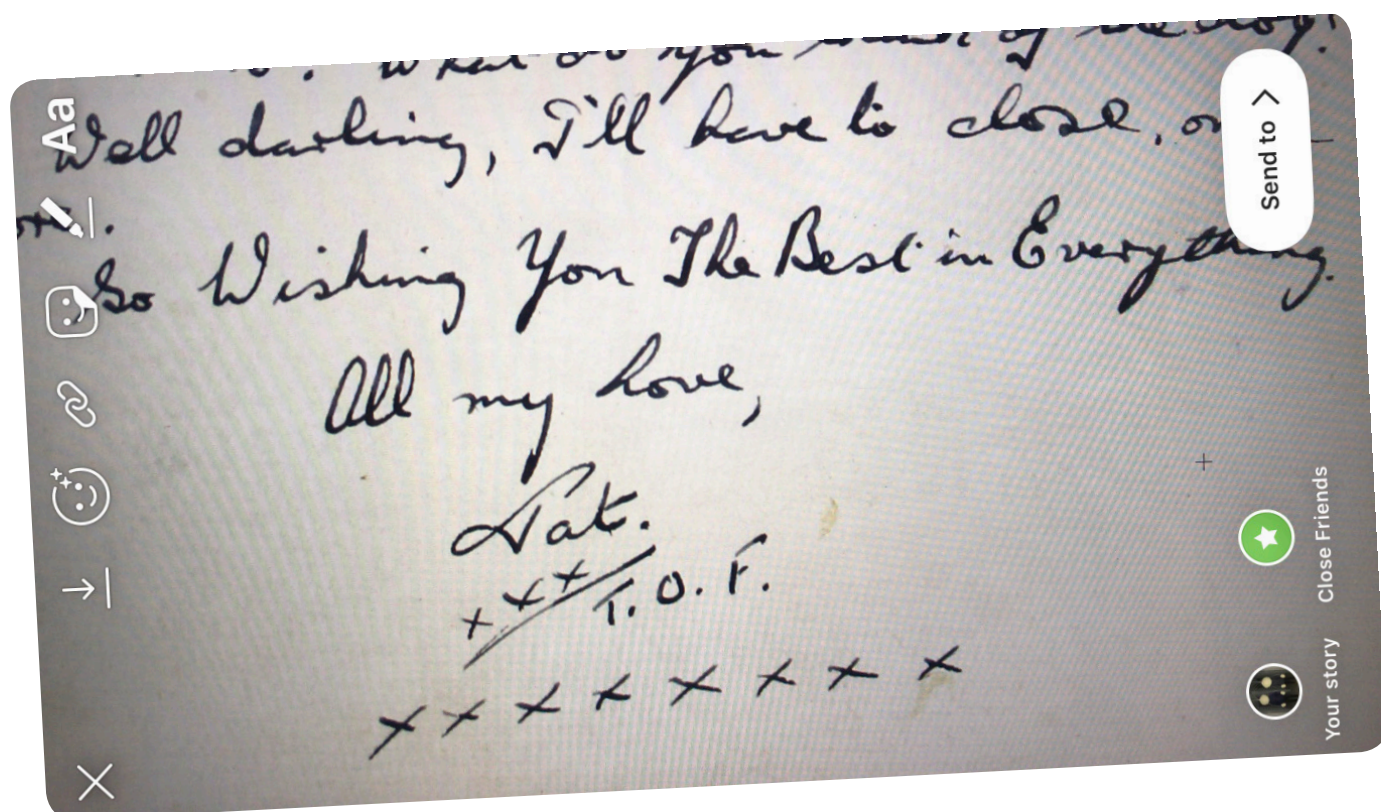 What do you think of the dog?
Well darling, I'll have to close, or
So Wishing You The Best in Everything.
All my love,
Nat.
x x x T.O.F.
x x x x x x x x
Aa
Send to >
Close Friends
Your story